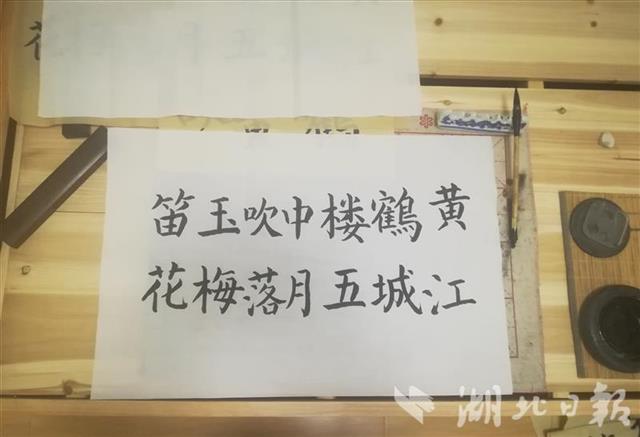 黄鶴楼中吹玉笛
江城五月落梅花
湖北日報